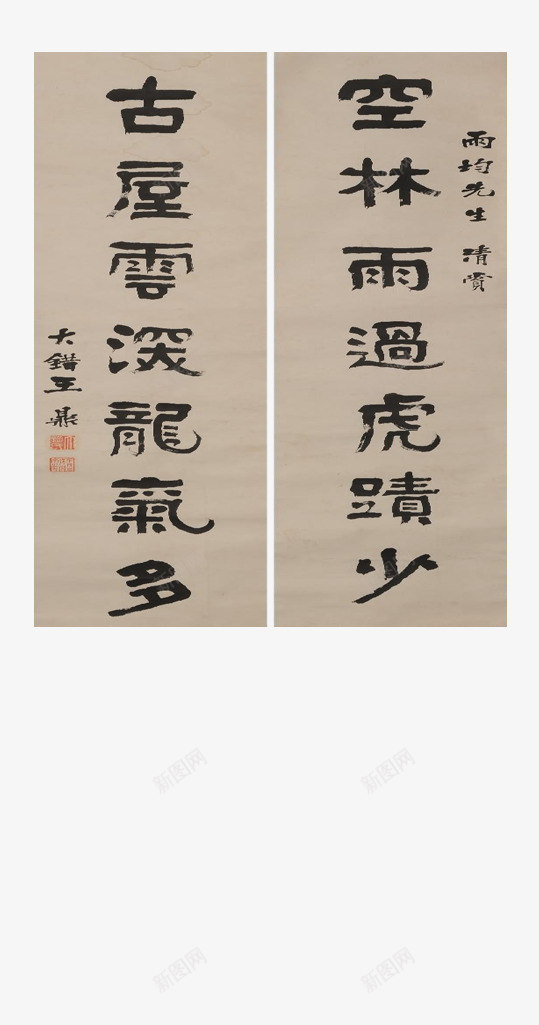 雨均先生 清賞
空林雨過虎蹟少
古屋雲深龍氣多
大錯王鼎
新图网
新图网
新图网
新图网